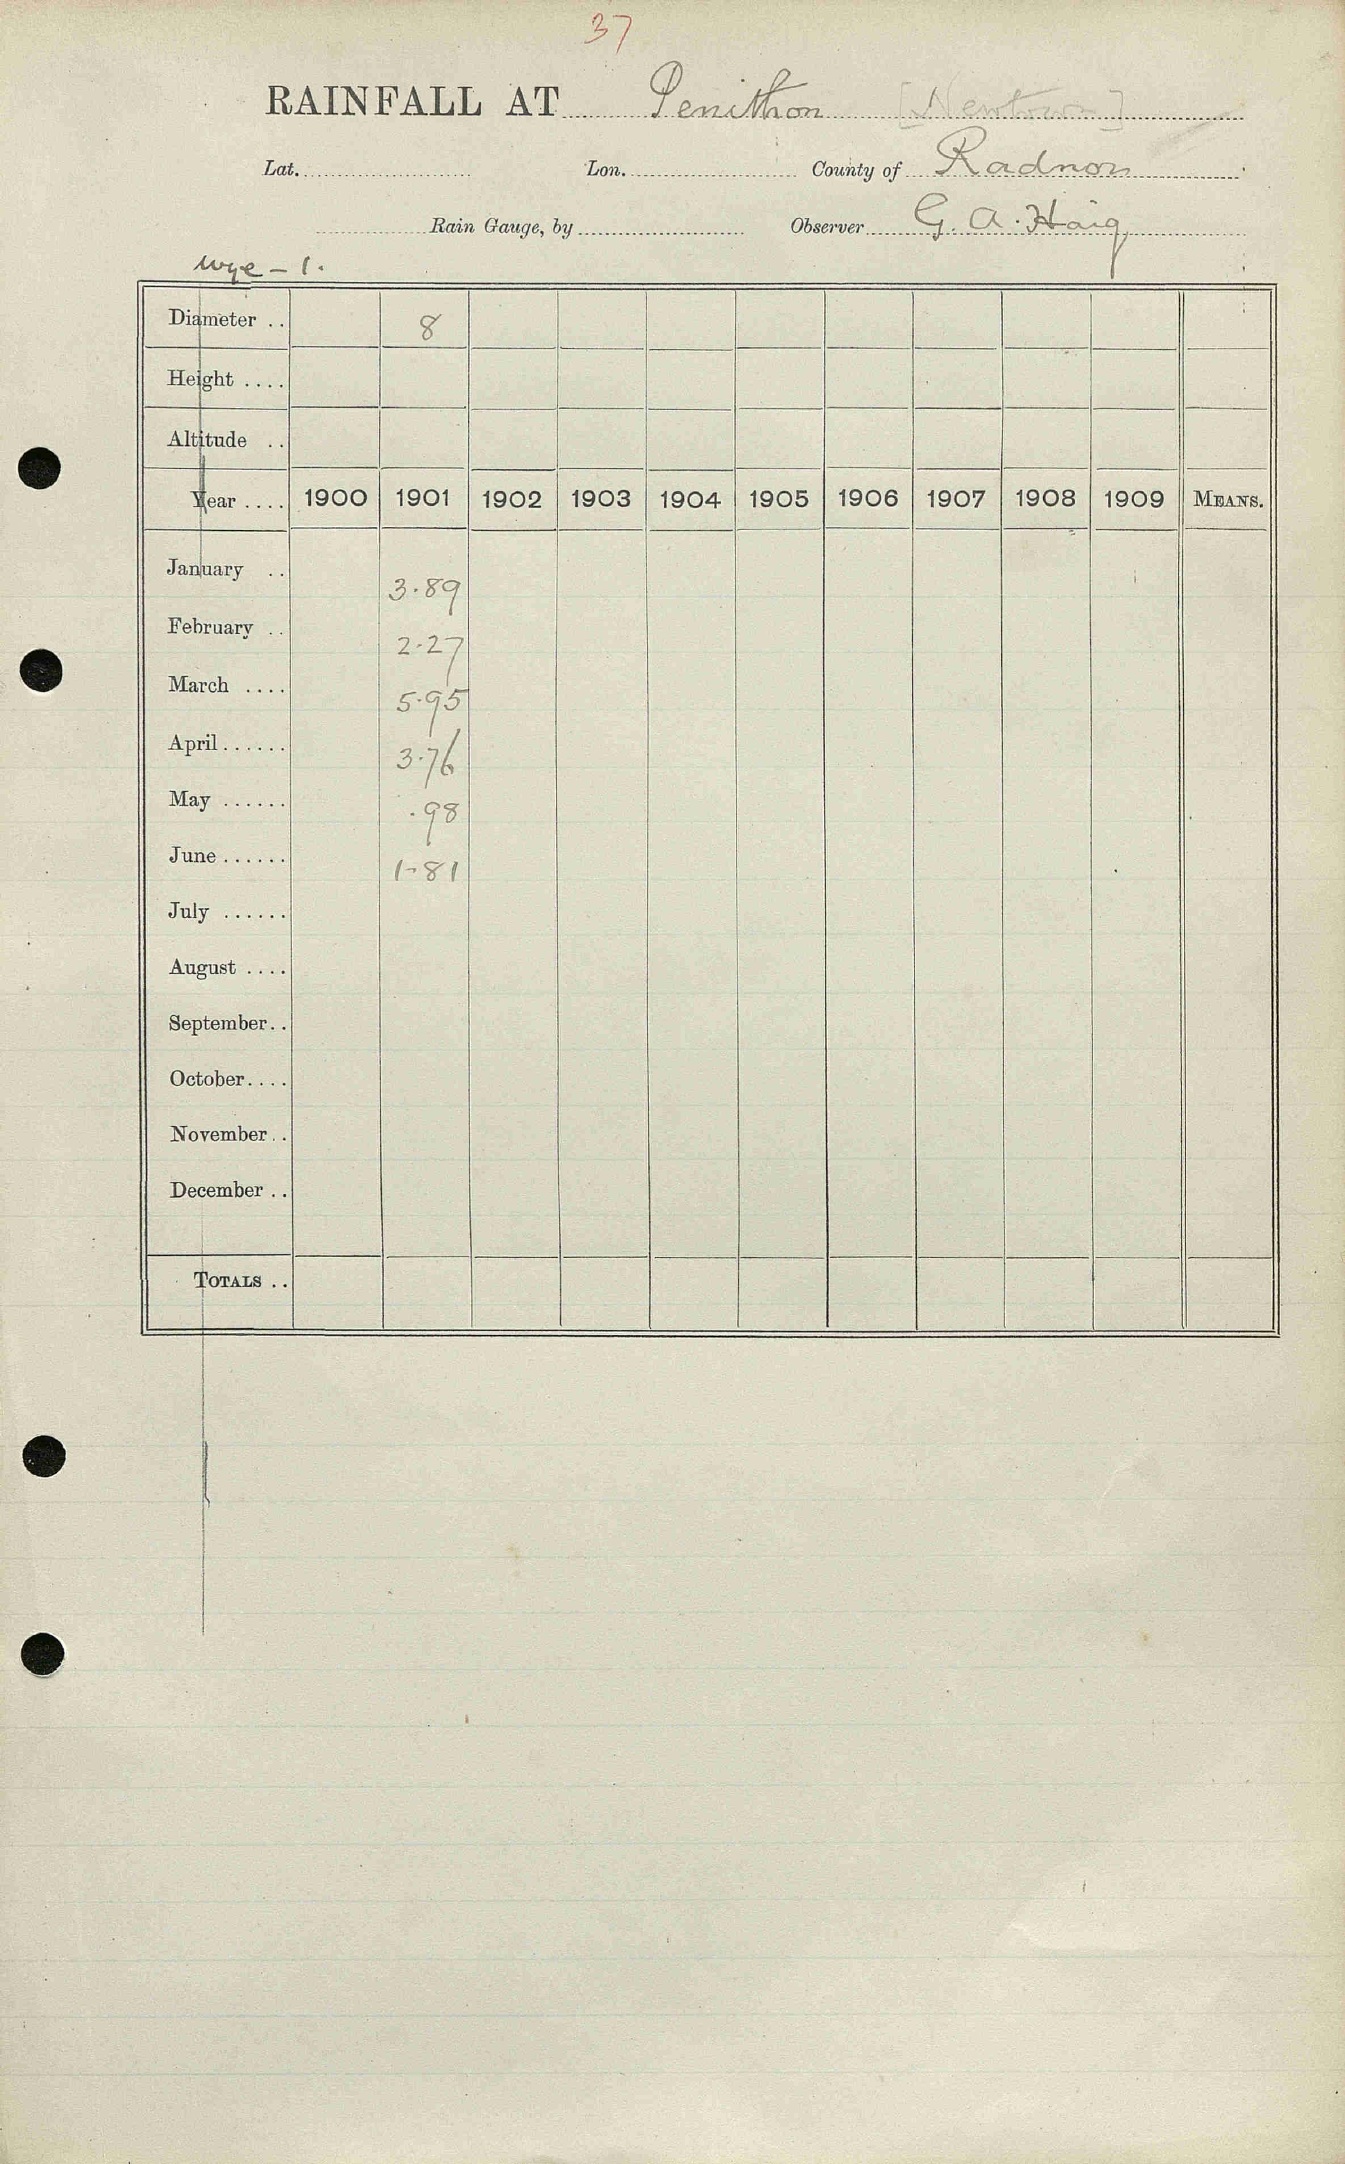 37
RAINFALL AT Penithon [Newtown]
Lat. Lon. County of Radnor
Rain Gauge, by Observer G. A. Haig
Wye - 1.
Diameter .. 8
Height ....
Altitude ..
Year .... 1900 1901 1902 1903 1904 1905 1906 1907 1908 1909 MEANS.
January .. 3.89
February .. 2.27
March .... 5.95
April...... 3.76
May ...... .98
June ...... 1.81
July ......
August ....
September..
October....
November..
December ..
TOTALS ..